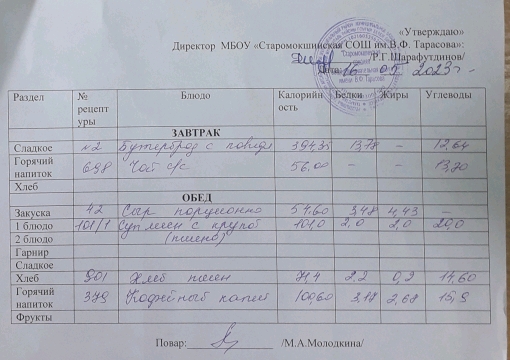 «Утверждаю»
Директор МБОУ «Старомокшинская СОШ им.В.Ф. Тарасова»:
/Р.Г.Шарафутдинов/
16 05 2023г.
Раздел № рецептуры Блюдо Калорийность Белки Жиры Углеводы
ЗАВТРАК
Сладкое №2 Бутерброд с повидл 394,35 13,78 – 12,64
Горячий напиток 698 Чай с/с 56.00 – 13,20
Хлеб
ОБЕД
Закуска 42 Сыр порционно 54,60 3,48 4,43 –
1 блюдо 101/1 Суп с крупой 101,0 2,0 2,0 20,0
2 блюдо (пшено)
Гарнир
Сладкое
Хлеб 901 Хлеб пшен 71,4 2.2 0,2 14,60
Горячий напиток 379 Кофейный напит 100,60 3,18 2,68 15,9
Фрукты
Повар: /М.А.Молодкина/